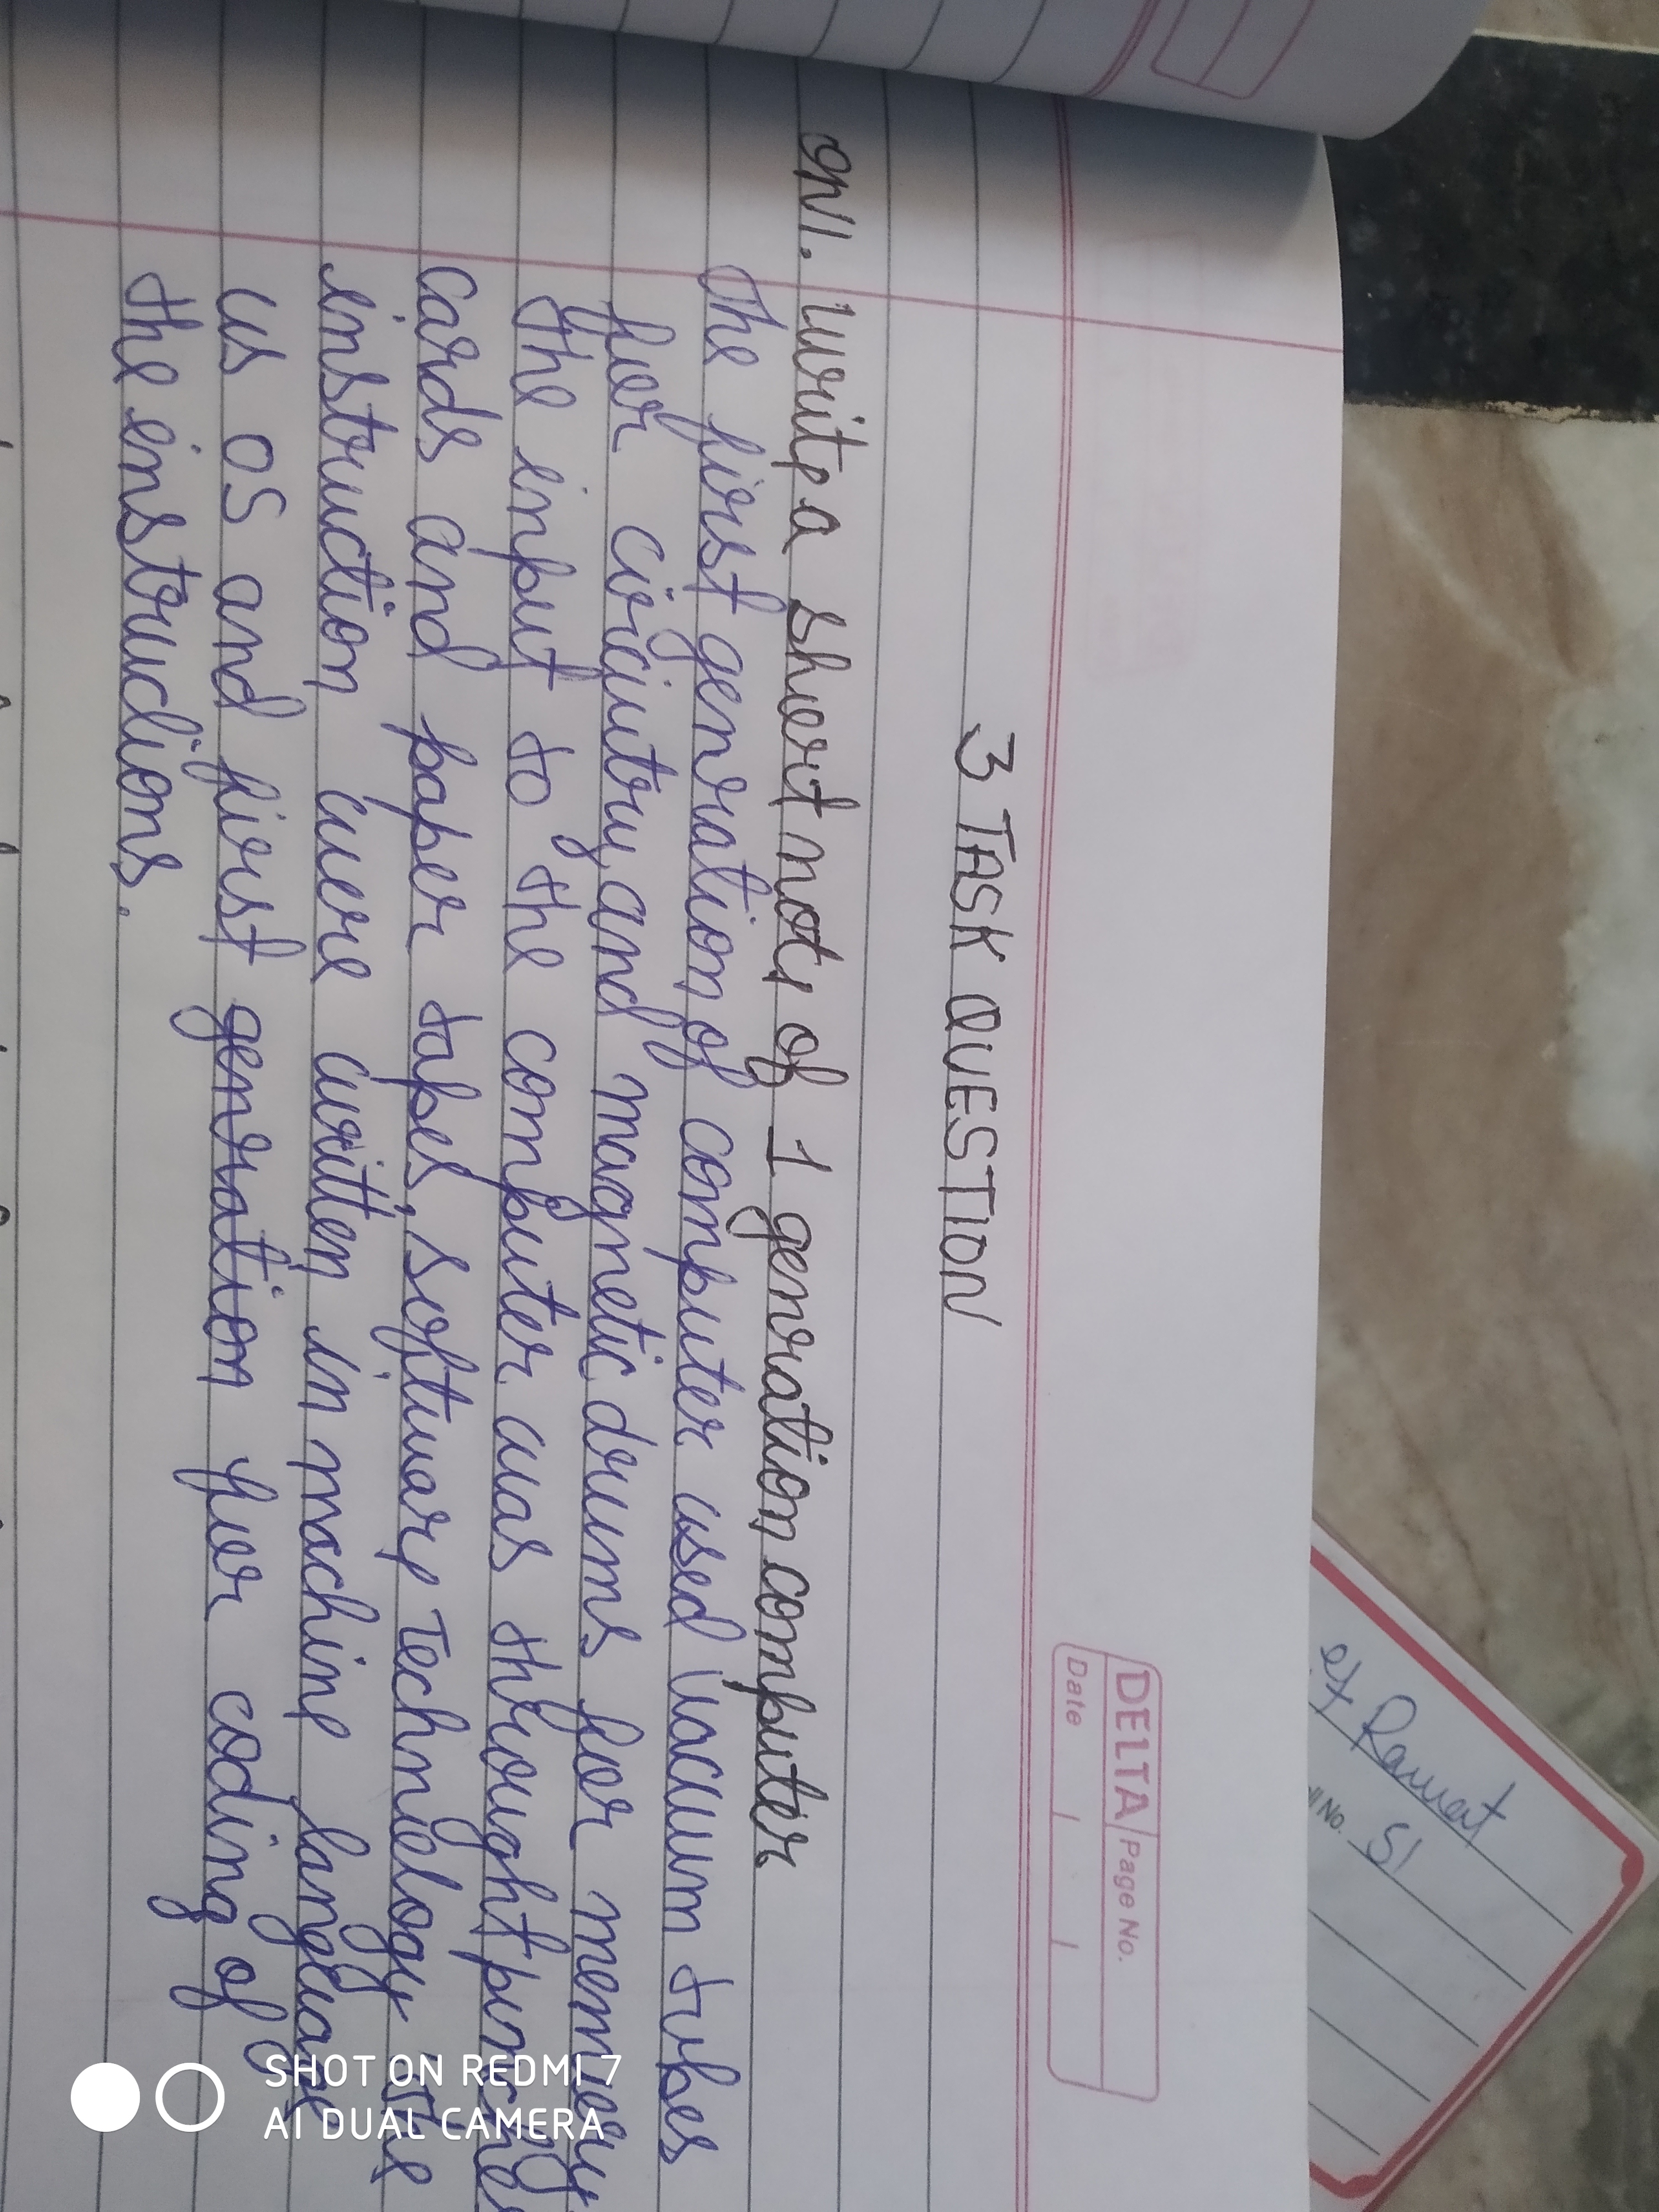 DELTA Page No.
Date
3 TASK QUESTION
QN1. write a short note of 1 genration computer
The first genration of computer used vacuum tubes
for circuitry and magnetic drums for memory
the input to the computer was throught punched
cards and paper tapes, software Technology the
instruction were written in machine language
us os and first genration for coding of
the instructions.
Rawat
No. 51
SHOT ON REDMI 7
AI DUAL CAMERA